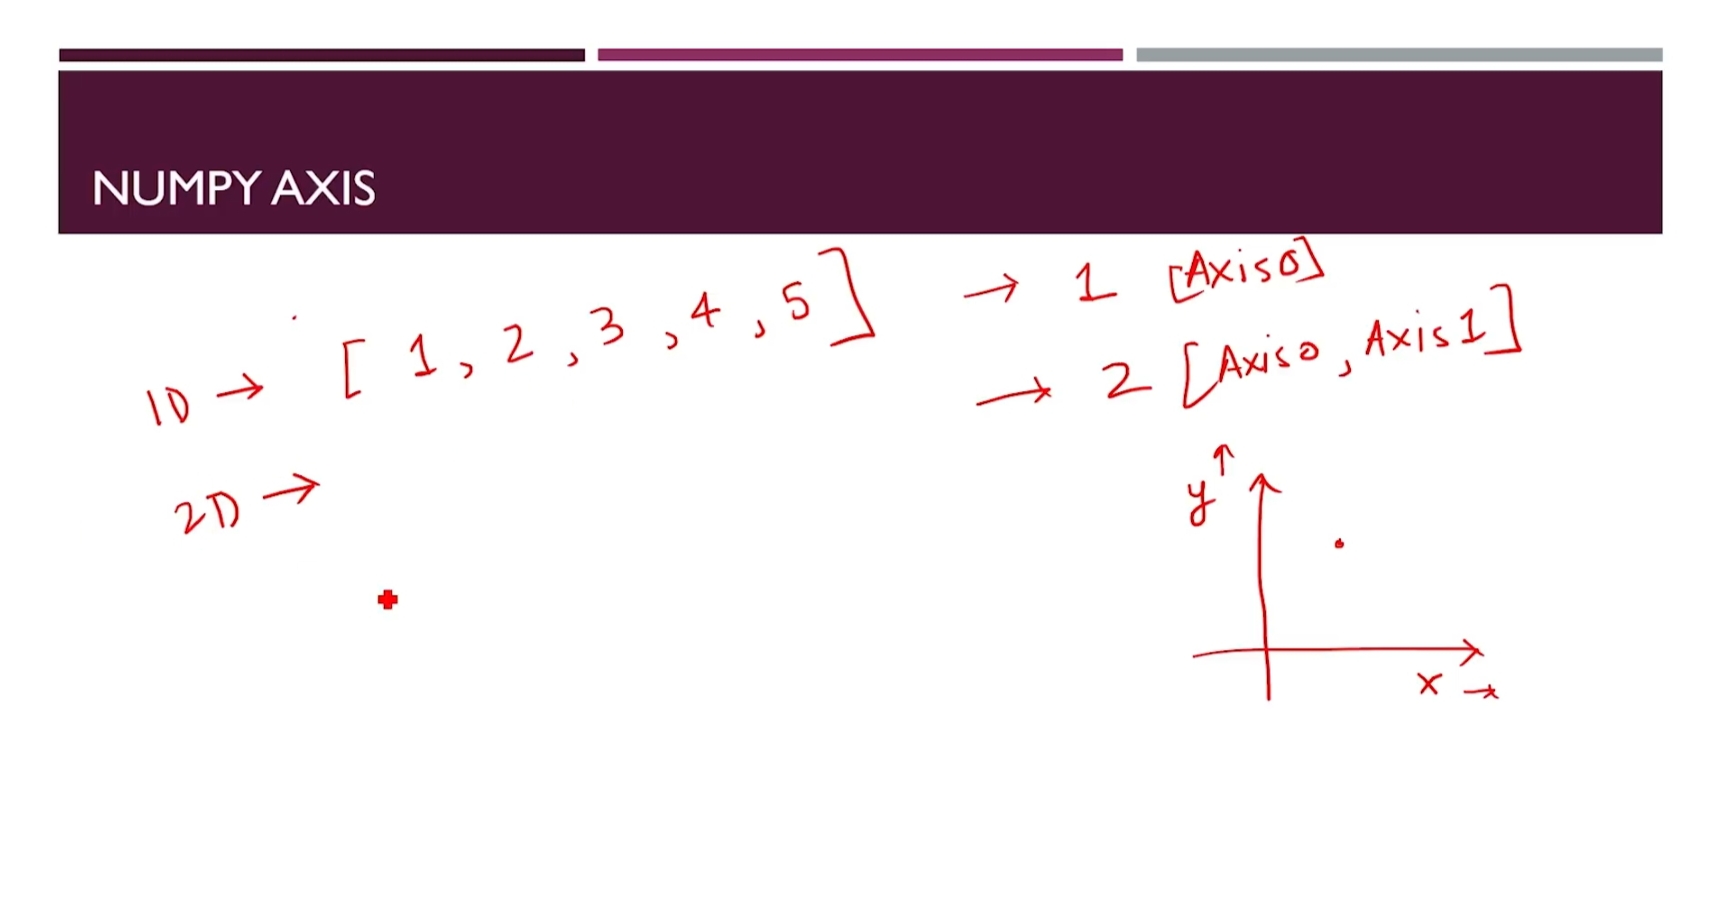 NUMPY AXIS
1D → [ 1, 2, 3, 4, 5 ] → 1 [Axis0]
2D → → 2 [Axis0, Axis1]
y ↑
x →